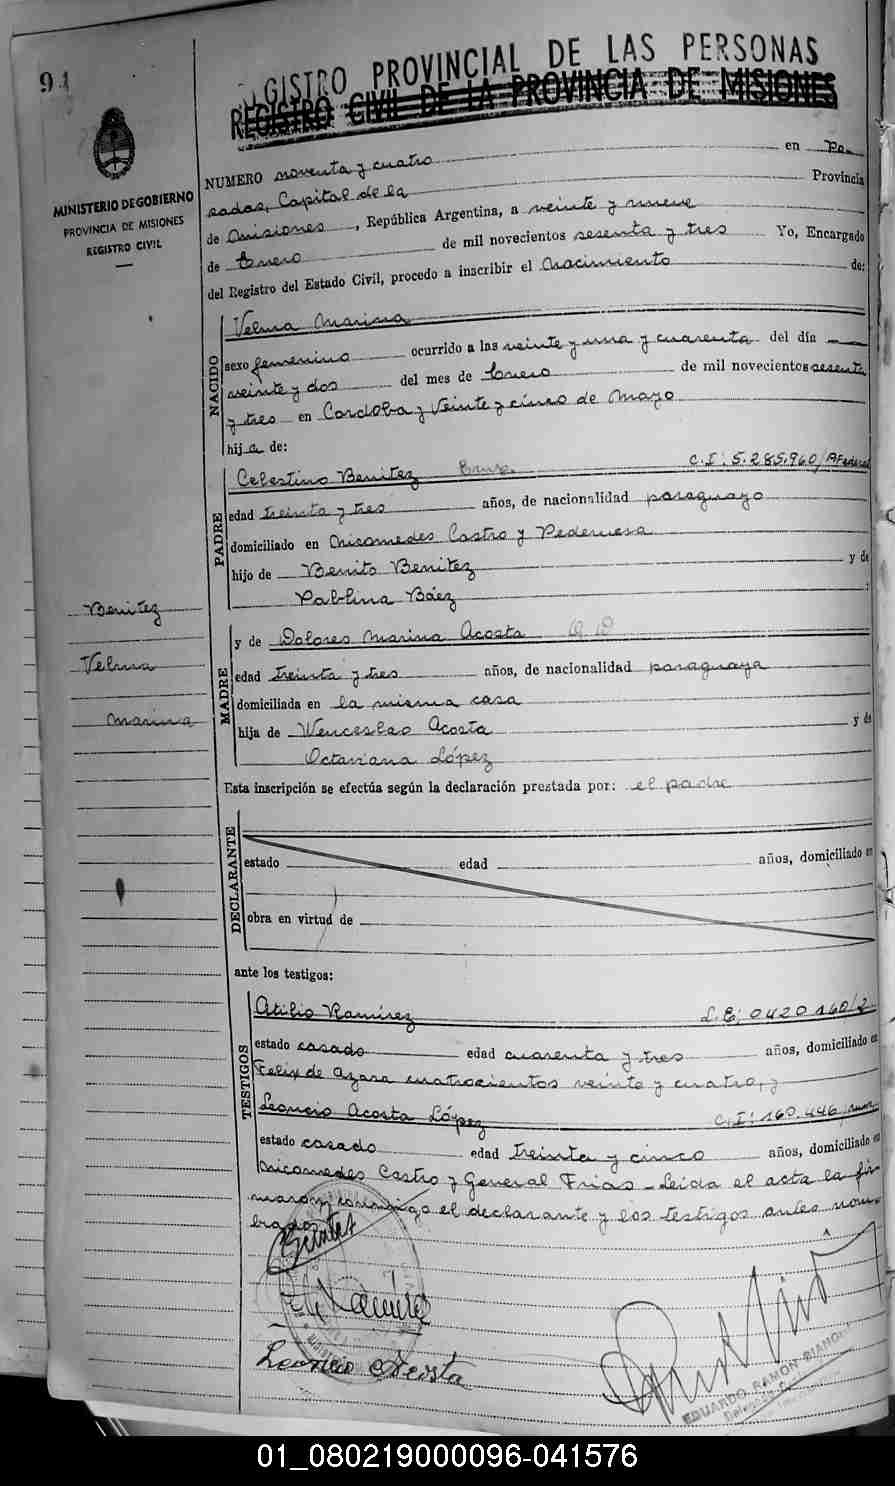 94
REGISTRO PROVINCIAL DE LAS PERSONAS
REGISTRO CIVIL DE LA PROVINCIA DE MISIONES
MINISTERIO DE GOBIERNO
PROVINCIA DE MISIONES
REGISTRO CIVIL
NUMERO noventa y cuatro en Po-
sadas, Capital de la Provincia
de Misiones, República Argentina, a veinte y nueve
de Enero de mil novecientos sesenta y tres Yo, Encargado
del Registro del Estado Civil, procedo a inscribir el Nacimiento de:
NACIDO
Velma Marina
sexo femenino ocurrido a las veinte y una y cuarenta del día
veinte y dos del mes de Enero de mil novecientos sesenta
y tres en Cordoba y Veinte y cinco de Mayo
hija de:
PADRE
Celestino Benitez C.I: 5.285.960/PFederal
edad treinta y tres años, de nacionalidad paraguayo
domiciliado en Nicomedes Castro y Pedernera
hijo de Benito Benitez y de
Pablina Báez :
MADRE
y de Dolores Marina Acosta
edad treinta y tres años, de nacionalidad paraguaya
domiciliada en la misma casa
hija de Wenceslao Acosta y de
Octaviana López
Benitez
Velma
Marina
Esta inscripción se efectúa según la declaración prestada por: el padre
DECLARANTE
estado edad años, domiciliado en
obra en virtud de
ante los testigos:
TESTIGOS
Atilio Ramírez L.E; 0420160/2
estado casado edad cuarenta y tres años, domiciliado en
Felix de Azara cuatrocientos veinte y cuatro, y
Leoncio Acosta López C.I: 160.446/
estado casado edad treinta y cinco años, domiciliado en
Nicomedes Castro y General Frias - Leida el acta la fir-
maron conmigo el declarante y los testigos antes nom-
brados
Benitez
Ramírez
Leoncio Acosta
EDUARDO RAMON BIANCHI
01_080219000096-041576